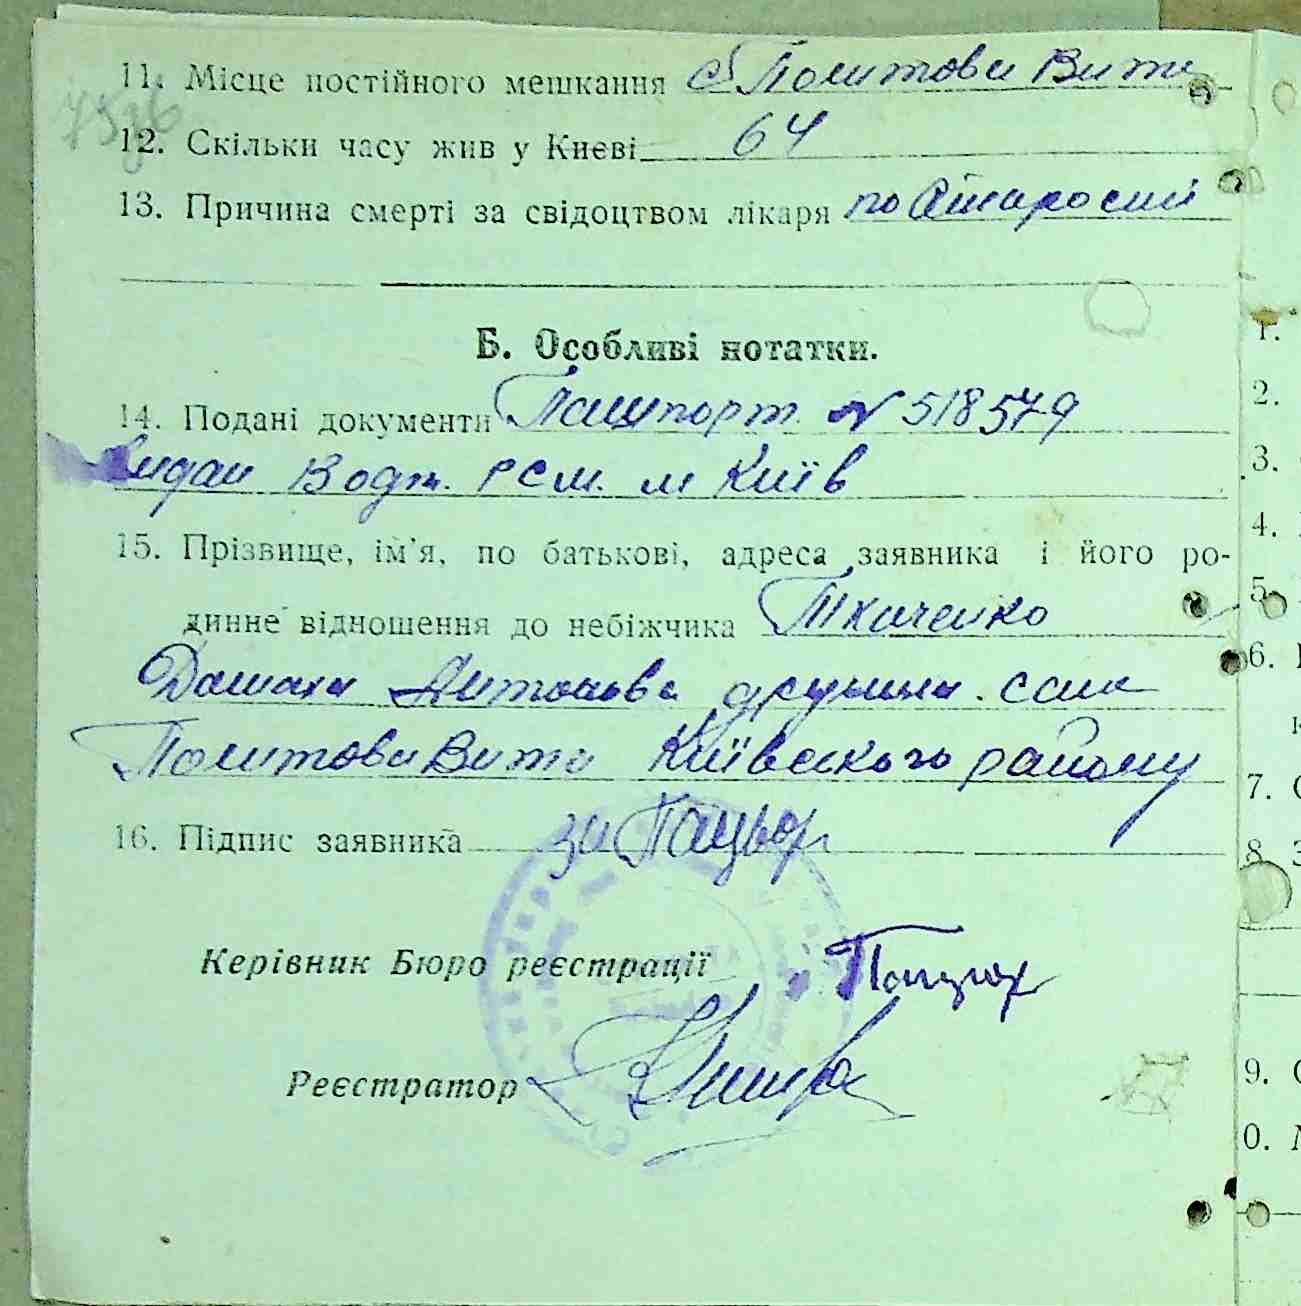 11. Місце постійного мешкання с Поштова Вита
12. Скільки часу жив у Києві 64
13. Причина смерті за свідоцтвом лікаря по старости
Б. Особливі нотатки.
14. Подані документи Пашпорт N 518579
видан Водт. РСМ. м Київ
15. Прізвище, ім'я, по батькові, адреса заявника і його ро-
динне відношення до небіжчика Ткаченко
Домаха Антонова дружина. село
Поштова Вита Київского району
16. Підпис заявника за
Керівник Бюро реєстрації
Реєстратор
1.
2.
3.
4.
5.
6.
7.
8.
9.
0.